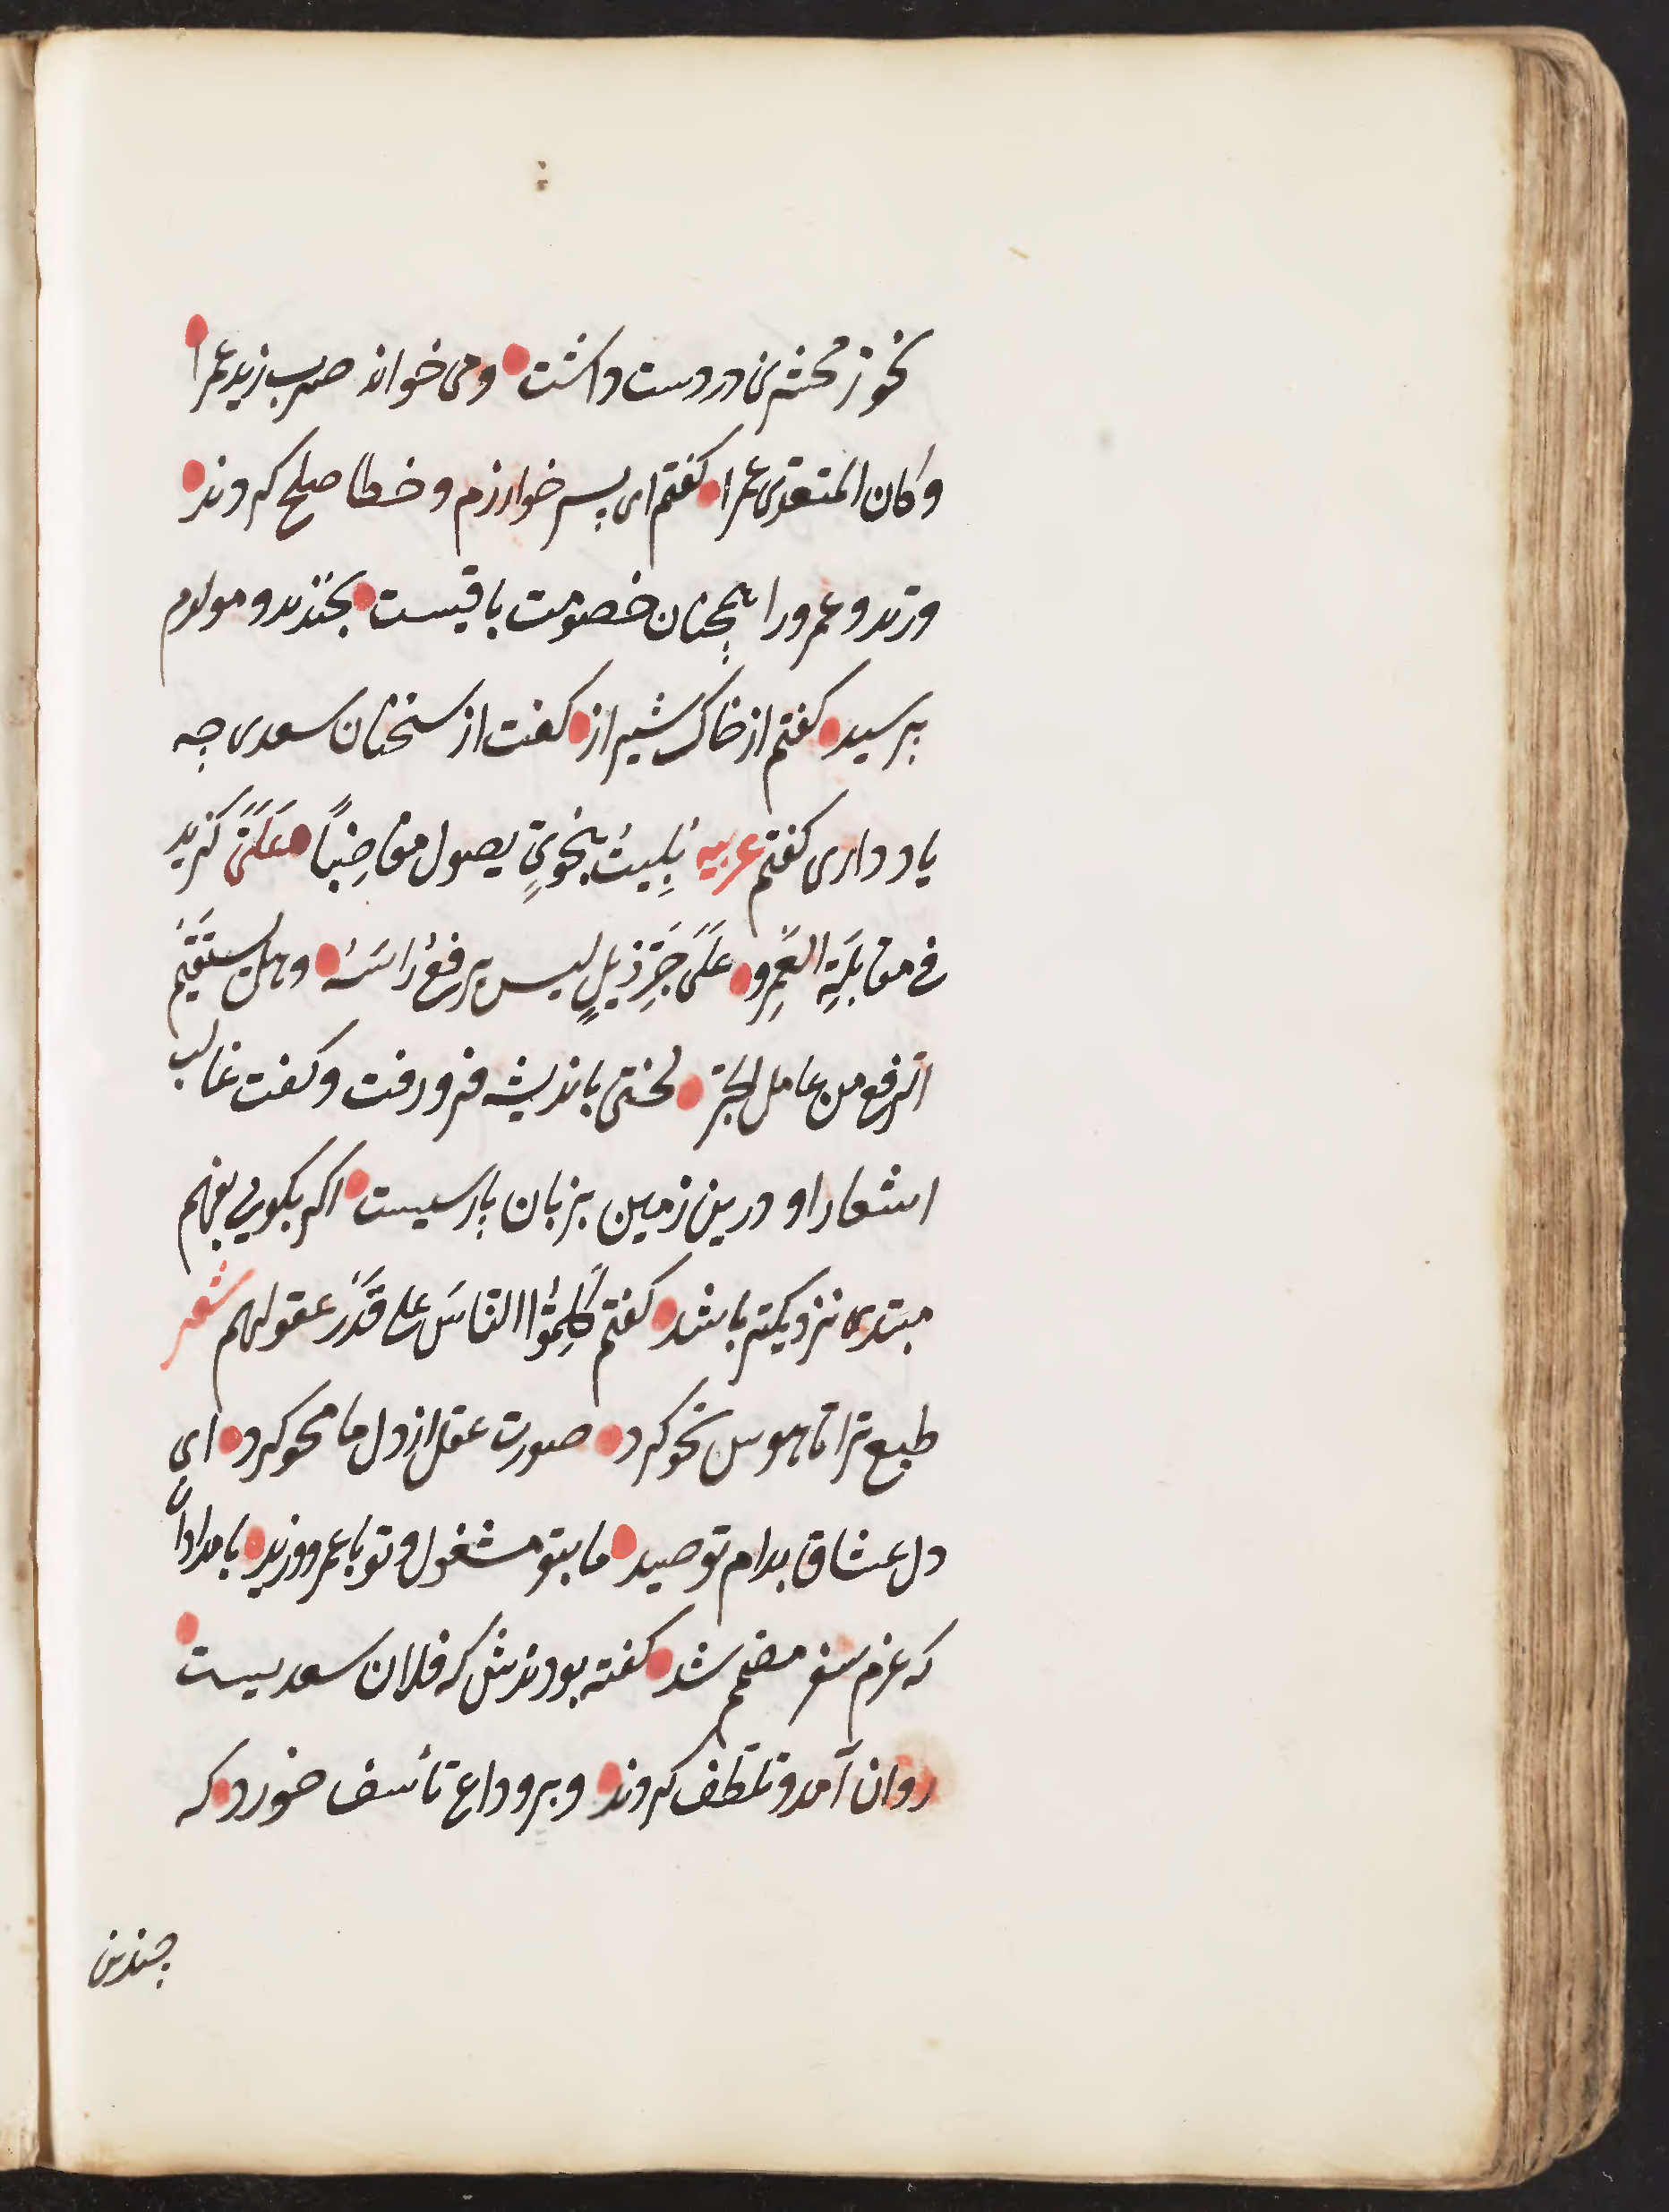 نحو زمخشری در دست داشت و می خواند ضرب زید عمرا
وکان المتعدی عمرا کفتم ای پسر خوارزم و خطا صلح کردند
و زید و عمرو را همچنان خصومت باقیست بخندید و مولدم
پرسید کفتم از خاک شیراز کفت از سخنان سعدی چه
یاد داری کفتم عربیه بُلِیتُ بنحویٍّ یصول مغاضِباً عَلَیَّ کزید
فی مقابَلَةِ العَمرِو عَلَی جَرِّ ذیلٍ لیس یرفعُ رَاسَهُ وهل یستَقیمُ
الرفع من عامل الجرّ لختی باندیشه فرو رفت و کفت غالب
اشعار او درین زمین بزبان پارسیست اکر بکویی بفهم
مبتدی نزدیکتر باشد کفتم کَلِّمُوا النّاسَ علی قَدَرِ عقولهم شعر
طبع ترا تا هوس نحو کرد صورت عقل از دل ما محو کرد ای
دل عشاق بدام تو صید ما بتو مشغول و تو با عمرو و زید بامدادان
که عزم سفر مصمم شد کفته بودندش که فلان سعدیست
روان آمد و تلطف کردند و بر وداع تأسف خورد که
چندین